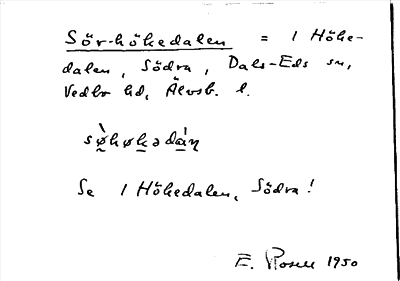 Sör-hökedalen = 1 Höke-
dalen, Södra, Dals-Eds sn,
Vedbo hd, Älvsb. l.
sø̀høkədáɳ
Se 1 Hökedalen, Södra!
E. Rosell 1950